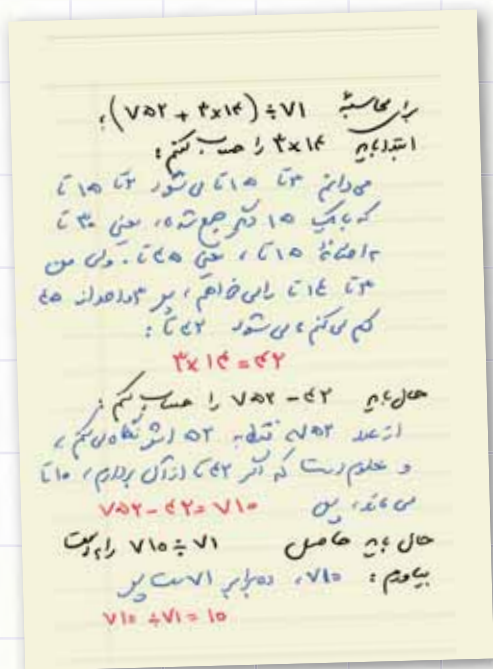 برای محاسبهٔ (۷۵۲ + ۳×۱۴) ÷ ۷۱،
ابتدا باید ۳×۱۴ را حساب کنم:
می‌دانم ۳ تا ۱۵ تا می‌شود ۲ تا ۱۵ تا
که با یک ۱۵ دیگر جمع شده، یعنی ۳۰ تا
به اضافهٔ ۱۵ تا، یعنی ۴۵ تا. ولی من
۳ تا ۱۴ تا را می‌خواهم، پس ۳ واحد از ۴۵
کم می‌کنم، می‌شود ۴۲ تا:
۳×۱۴=۴۲
حال باید ۷۵۲-۴۲ را حساب کنم:
از عدد ۷۵۲ فقط به ۵۲ اش نگاه می‌کنم،
و معلوم است که اگر ۴۲ تا از آن بردارم، ۱۰ تا
می‌ماند، پس ۷۵۲-۴۲=۷۱۰
حال باید حاصل ۷۱۰÷۷۱ را به‌دست
بیاورم: ۷۱۰، ده برابر ۷۱ است پس
۷۱۰÷۷۱=۱۰